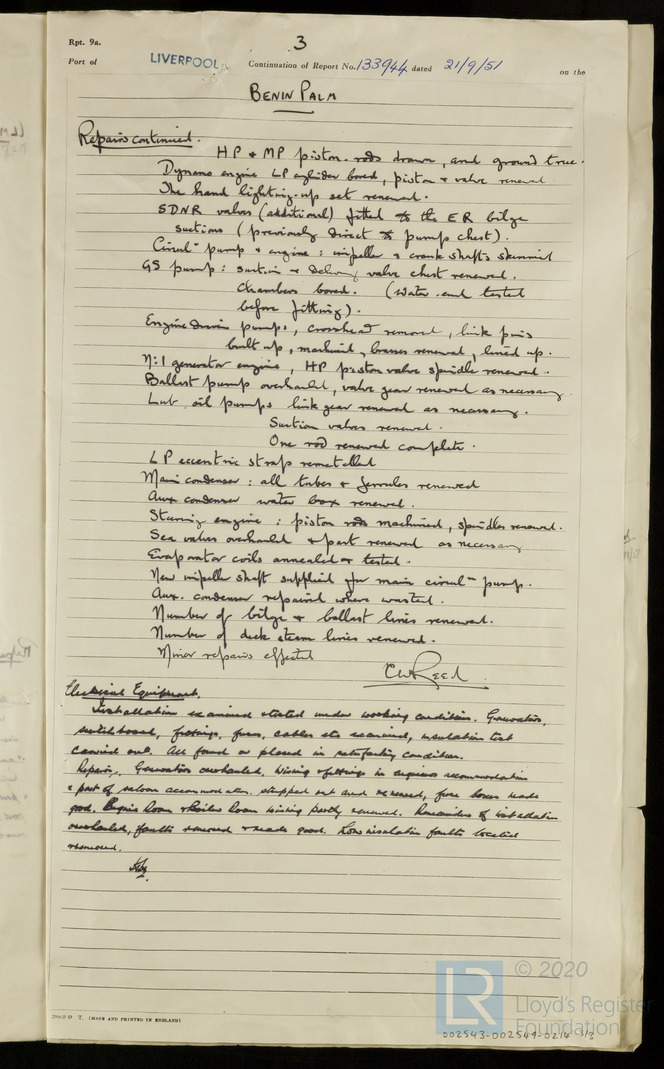 Rpt. 9a.
3
Port of LIVERPOOL Continuation of Report No. 133944 dated 21/9/51 on the
BENIN PALM
Repairs continued.
HP & MP piston rods drawn, and ground true.
Dynamo engine LP cylinder bored, piston & valve renewed
The hand lighting-up set renewed.
SDNR valves (additional) fitted to the ER bilge
suctions (previously direct to pump chest).
Circul- pump & engine: impeller & crank shafts skimmed
GS pump: suction & delivery valve chest renewed.
Chambers bored. (Water end tested
before fitting).
Engine driven pumps, crosshead removed, link pins
built up, machined, brasses renewed, lined up.
No:1 generator engine, HP piston valve spindle renewed.
Ballast pump overhauled, valve gear renewed as necessary
Lub. oil pumps link gear renewed as necessary.
Suction valves renewed.
One rod renewed complete.
LP eccentric straps remetalled
Main condenser: all tubes & ferrules renewed
Aux condenser water box renewed.
Steering engine: piston rods machined, spindles renewed.
Sea valves overhauled & part renewed as necessary
Evaporator coils annealed & tested.
New impeller shaft supplied for main circul- pump.
Aux. condenser repaired where wasted.
Number of bilge & ballast lines renewed.
Number of deck steam lines renewed.
Minor repairs effected
CW Reed.
Electrical Equipment.
Installation examined & tested under working condition. Generators,
switchboard, fittings, fuses, cables etc examined, insulation test
carried out. All found or placed in satisfactory condition.
Repairs. Generators overhauled, Wiring & fittings in engineers accommodation
& part of saloon accommodation stripped out and renewed, fuse boxes made
good. Engine Room & Boiler Room wiring partly renewed. Remainder of installation
overhauled, faults removed & made good. Low insulation faults located
& removed.
T. (MADE AND PRINTED IN ENGLAND)
LR © 2020
Lloyd's Register
Foundation
002543-002549-0214 3/3